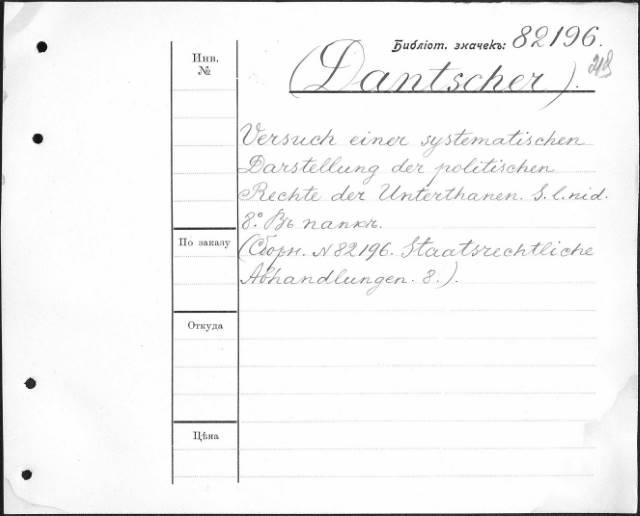 Библіот. значекъ: 82196.
Инв.
№
(Dantscher).
Versuch einer systematischen
Darstellung der politischen
Rechte der Unterthanen. S. l. nid.
8.° Въ папкѣ.
По заказу
(Сборн. N 82196. Staatsrechtliche
Abhandlungen. 8.).
Откуда
Цѣна